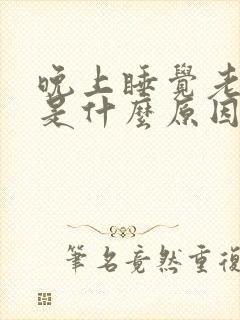 晚上睡覺老
是什麼原因
筆名竟然重復